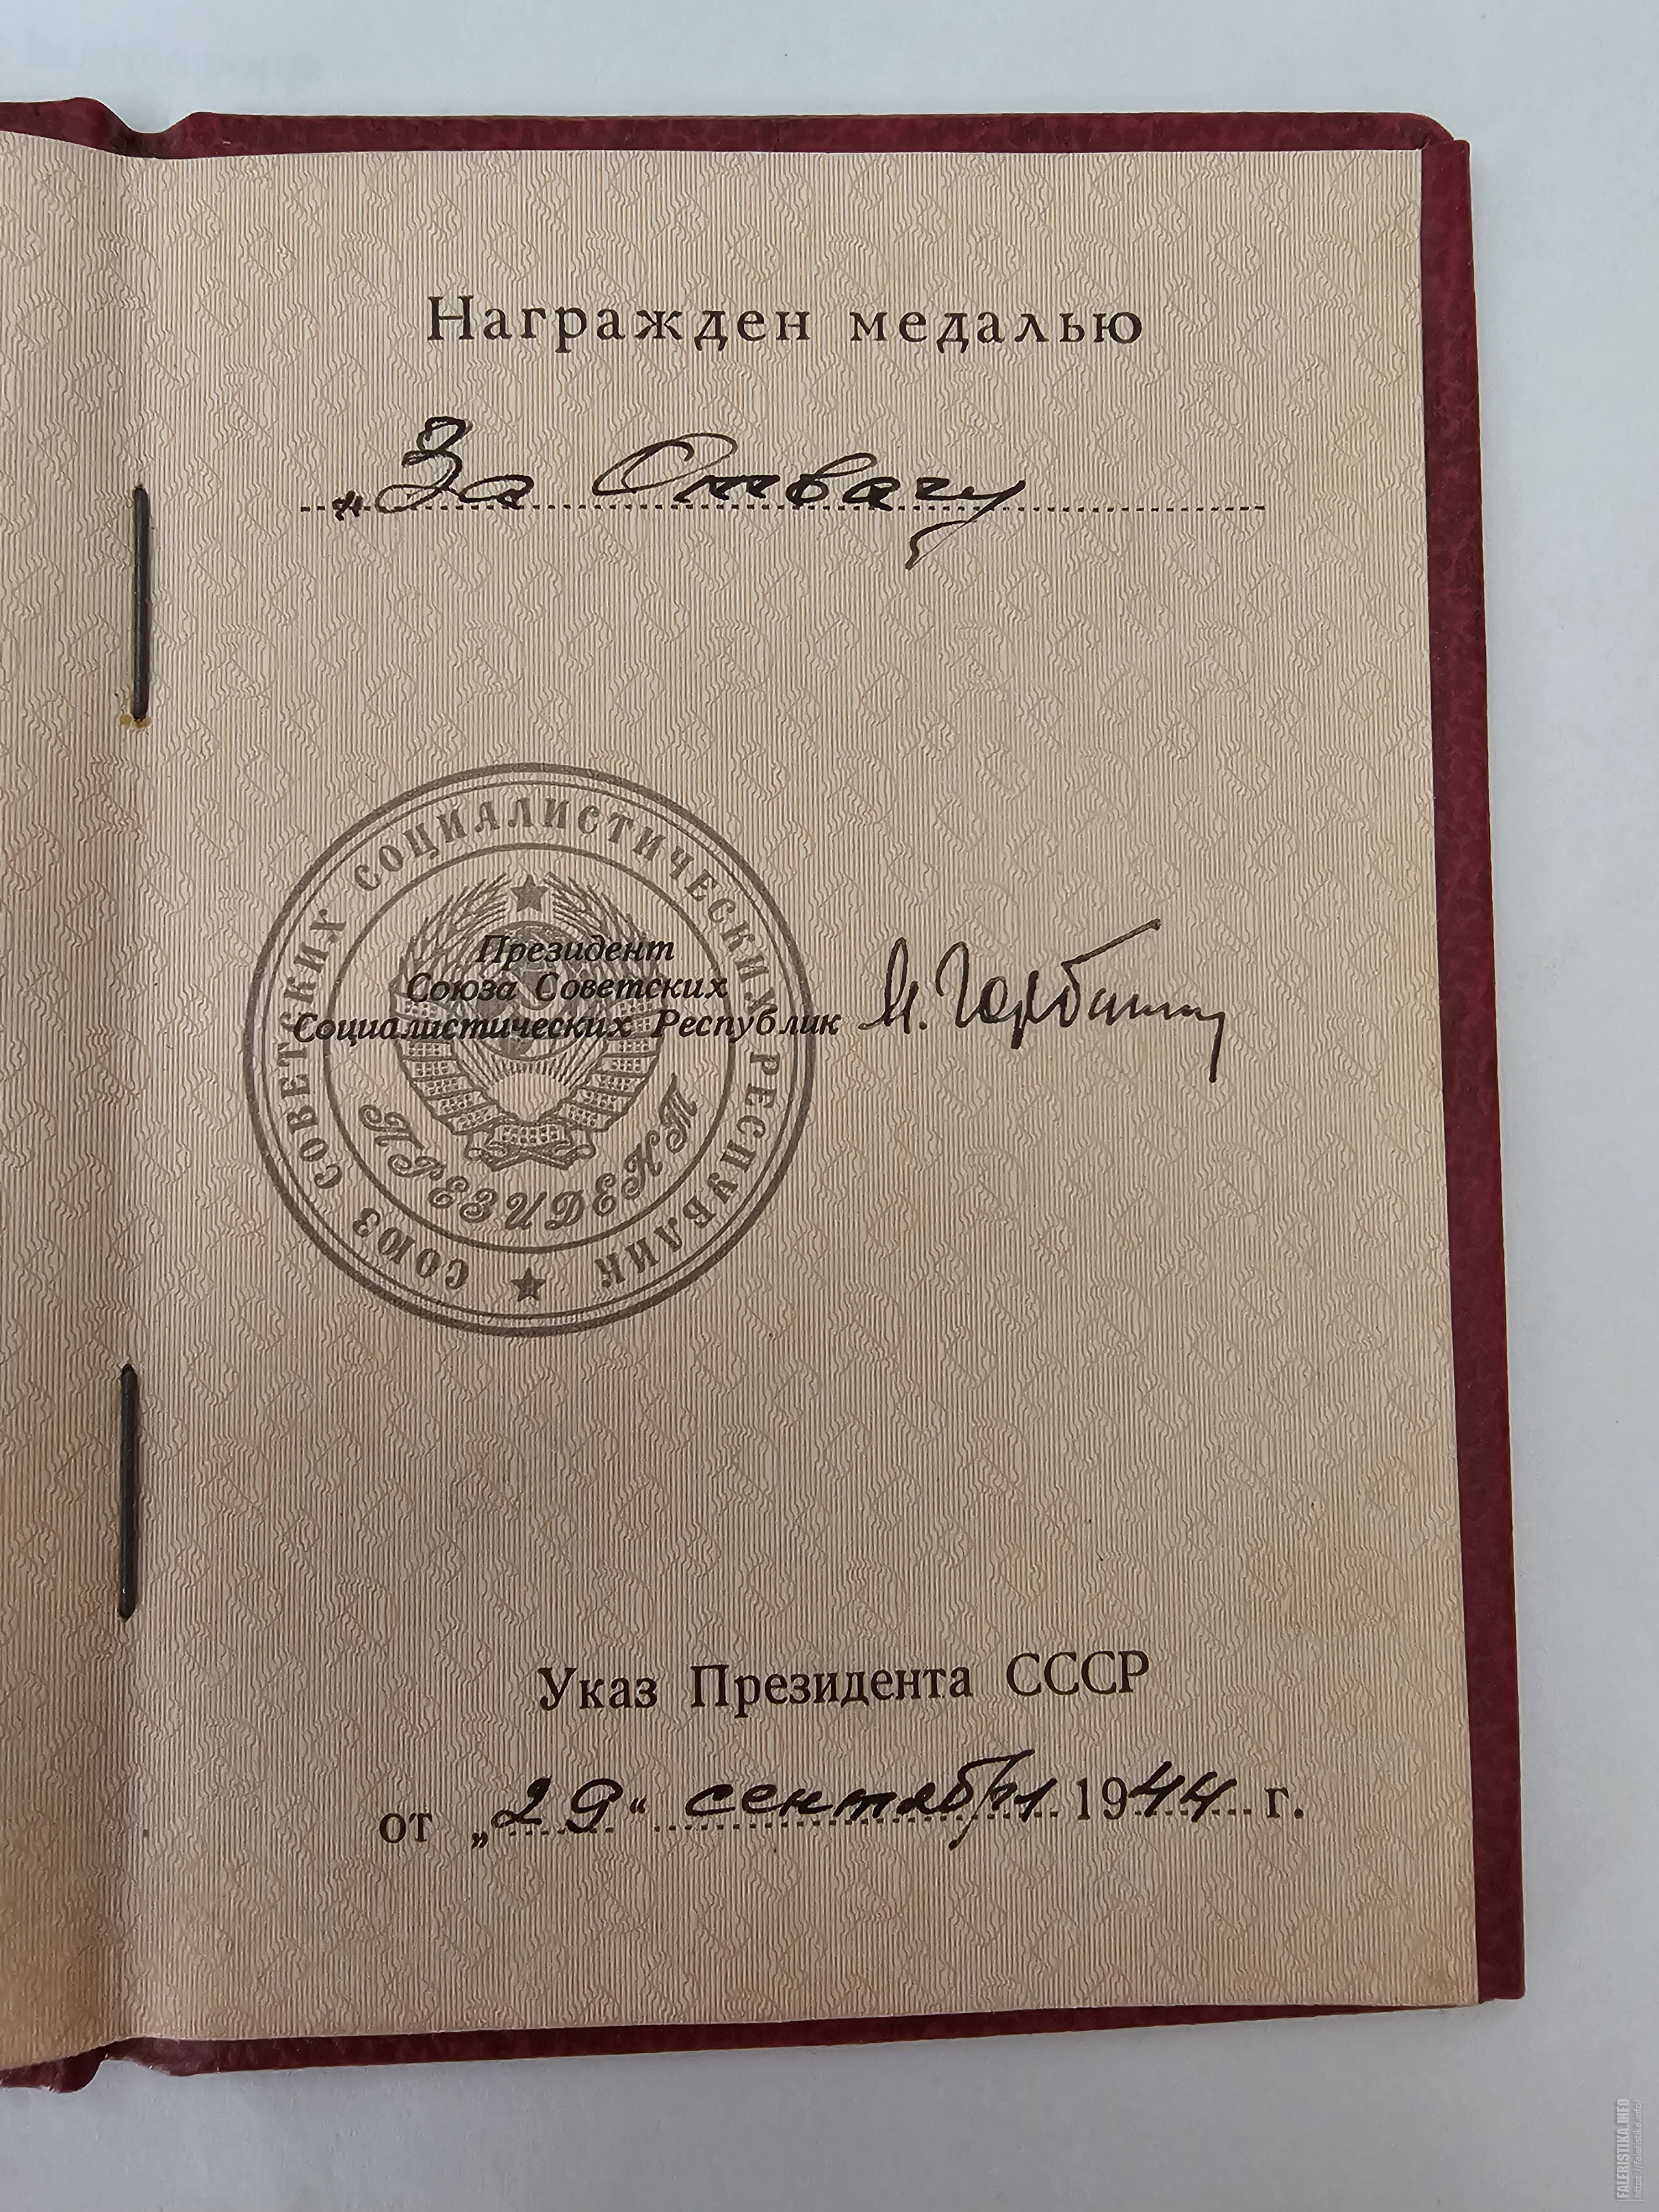 Награжден медалью
„За Отвагу
СОЮЗ СОВЕТСКИХ СОЦИАЛИСТИЧЕСКИХ РЕСПУБЛИК
ПРЕЗИДЕНТ
Президент
Союза Советских
Социалистических Республик
М. Горбачев
Указ Президента СССР
от „29“ сентября 1944 г.
FALERISTIKA.INFO
https://faleristika.info/